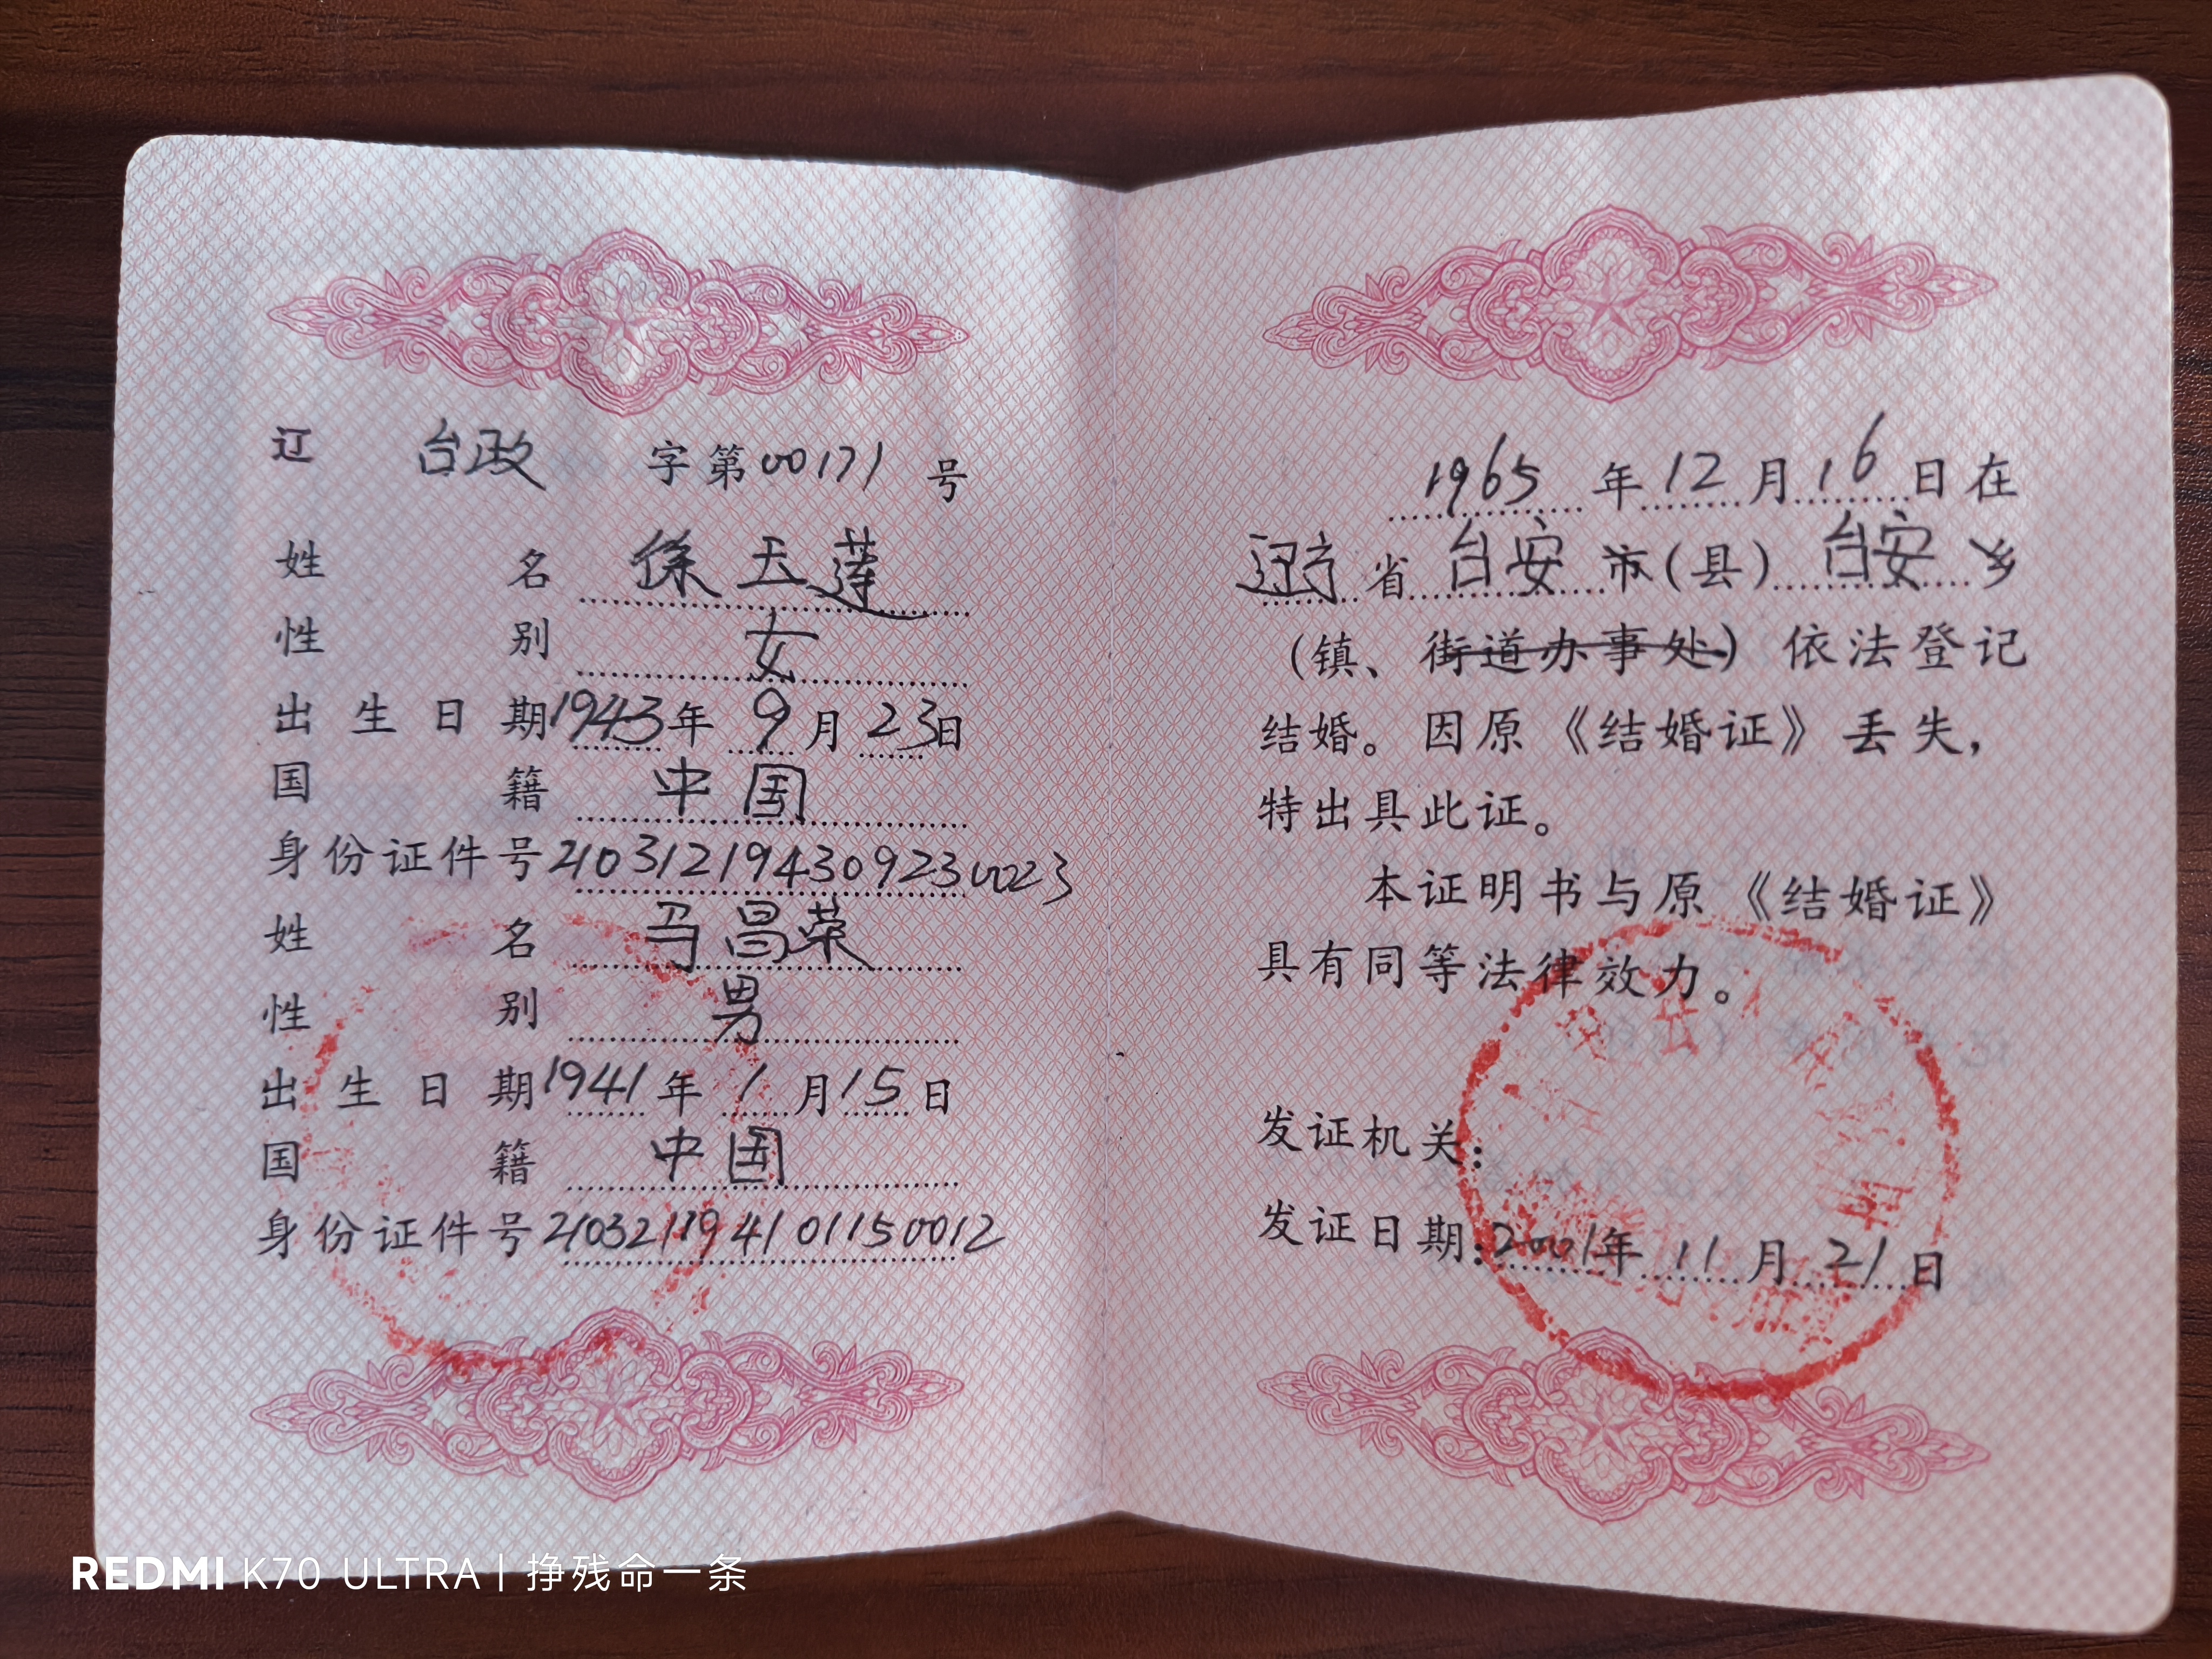 辽 台政 字第00171号
姓名 徐玉莲
性别 女
出生日期 1943年9月23日
国籍 中国
身份证件号 210312194309230023
姓名 马昌荣
性别 男
出生日期 1941年1月15日
国籍 中国
身份证件号 210321194101150012
1965年12月16日在
辽宁省台安市(县)台安乡
(镇、街道办事处)依法登记
结婚。因原《结婚证》丢失,
特出具此证。
本证明书与原《结婚证》
具有同等法律效力。
发证机关:
发证日期:2001年11月21日
REDMI K70 ULTRA | 挣残命一条